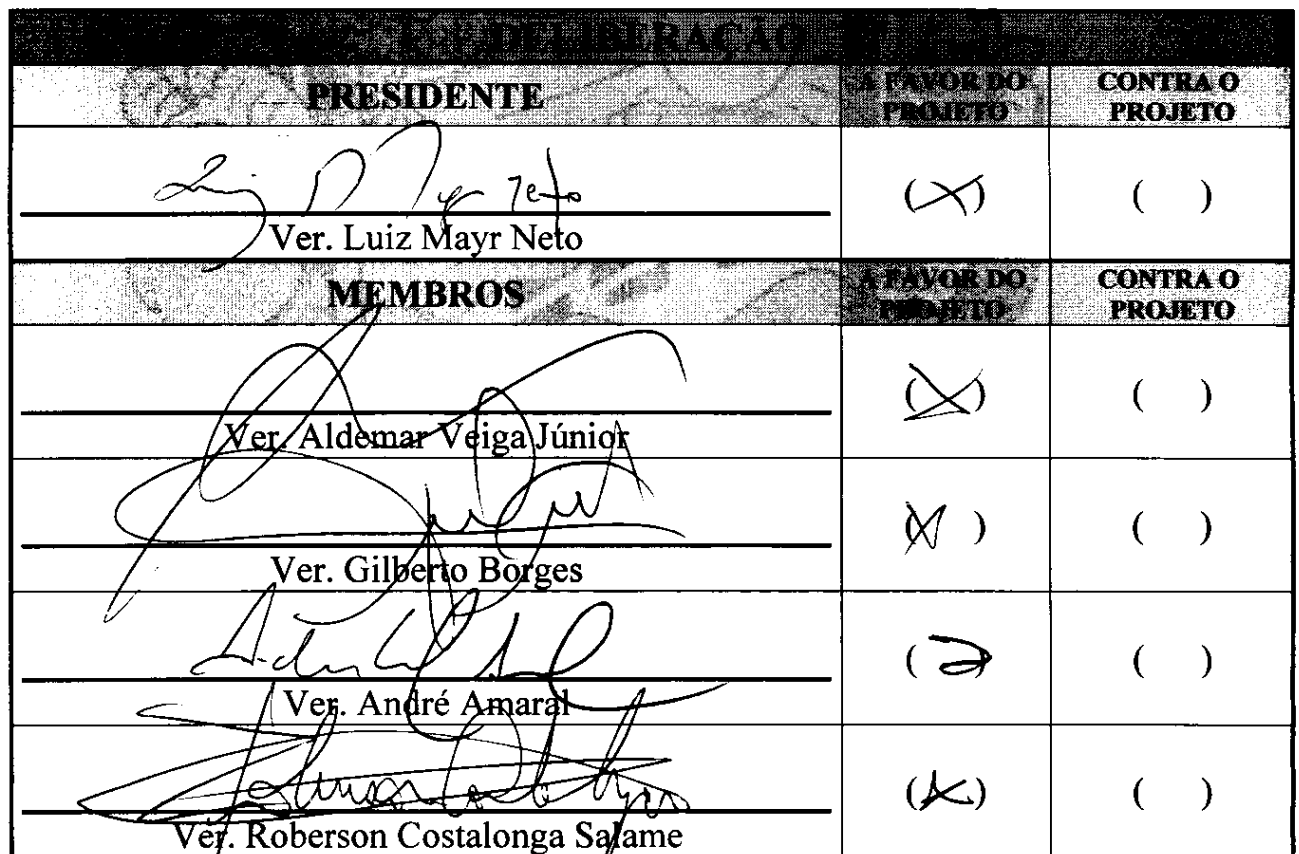 DELIBERAÇÃO
PRESIDENTE A FAVOR DO PROJETO CONTRA O PROJETO
Luiz Mayr Neto (X) ( )
Ver. Luiz Mayr Neto
MEMBROS A FAVOR DO PROJETO CONTRA O PROJETO
(X) ( )
Ver. Aldemar Veiga Júnior
(X) ( )
Ver. Gilberto Borges
( ) ( )
Ver. André Amaral
(X) ( )
Ver. Roberson Costalonga Salame